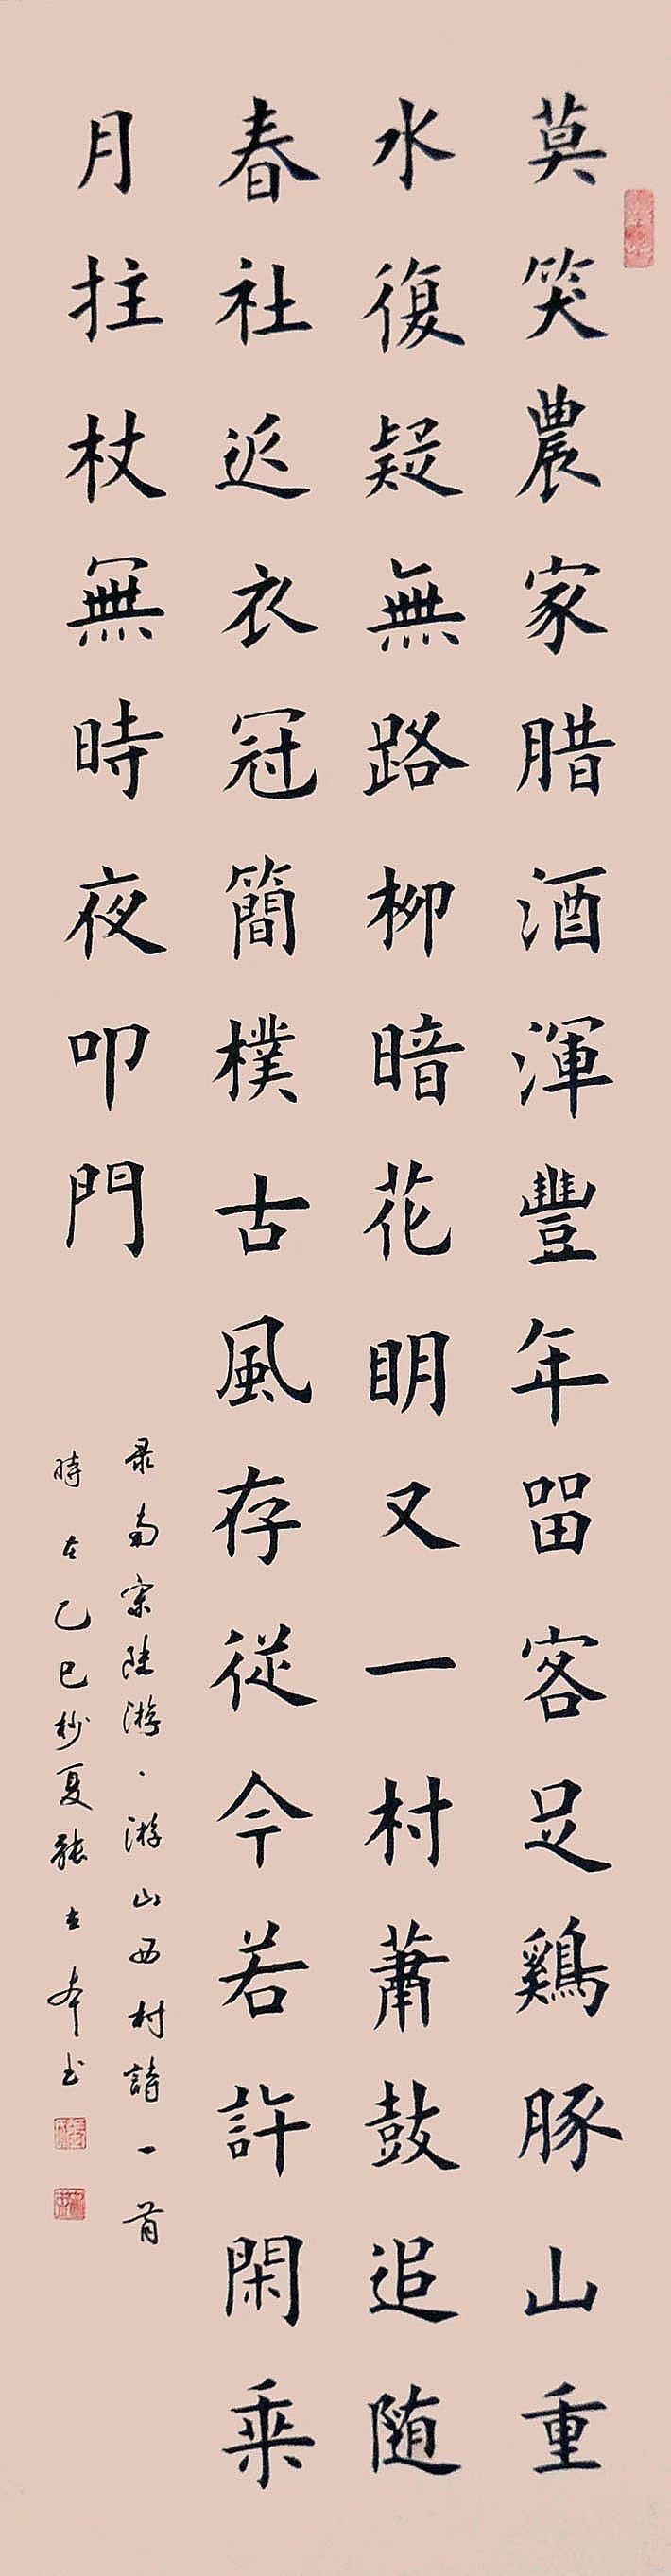 莫笑農家腊酒渾豐年留客足鷄豚山重
水復疑無路柳暗花眀又一村蕭鼓追随
春社近衣冠簡樸古風存從今若許閑乘
月拄杖無時夜叩門
录南宋陸游、游山西村詩一首
時在乙巳杪夏張立本书